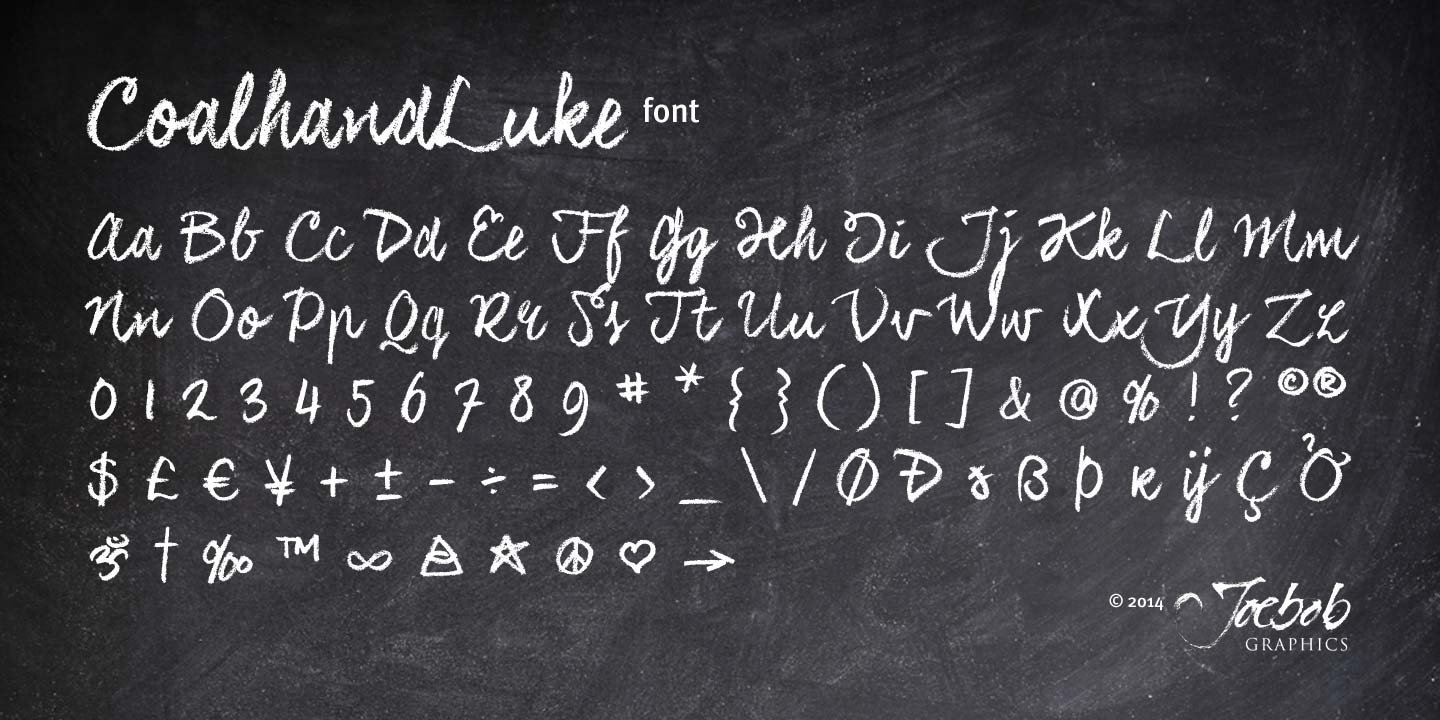 CoalhandLuke font
Aa Bb Cc Dd Ee Ff Gg Hh Ii Jj Kk Ll Mm
Nn Oo Pp Qq Rr Ss Tt Uu Vv Ww Xx Yy Zz
0 1 2 3 4 5 6 7 8 9 # * { } ( ) [ ] & @ % ! ? © ®
$ £ € ¥ + ± − ÷ = < > _ \ / Ø Đ ş ß þ ĸ ÿ Ç Ở
ॐ † ‰ ™ ∞ ★ ☮ ♡ →
© 2014 Joebob
GRAPHICS